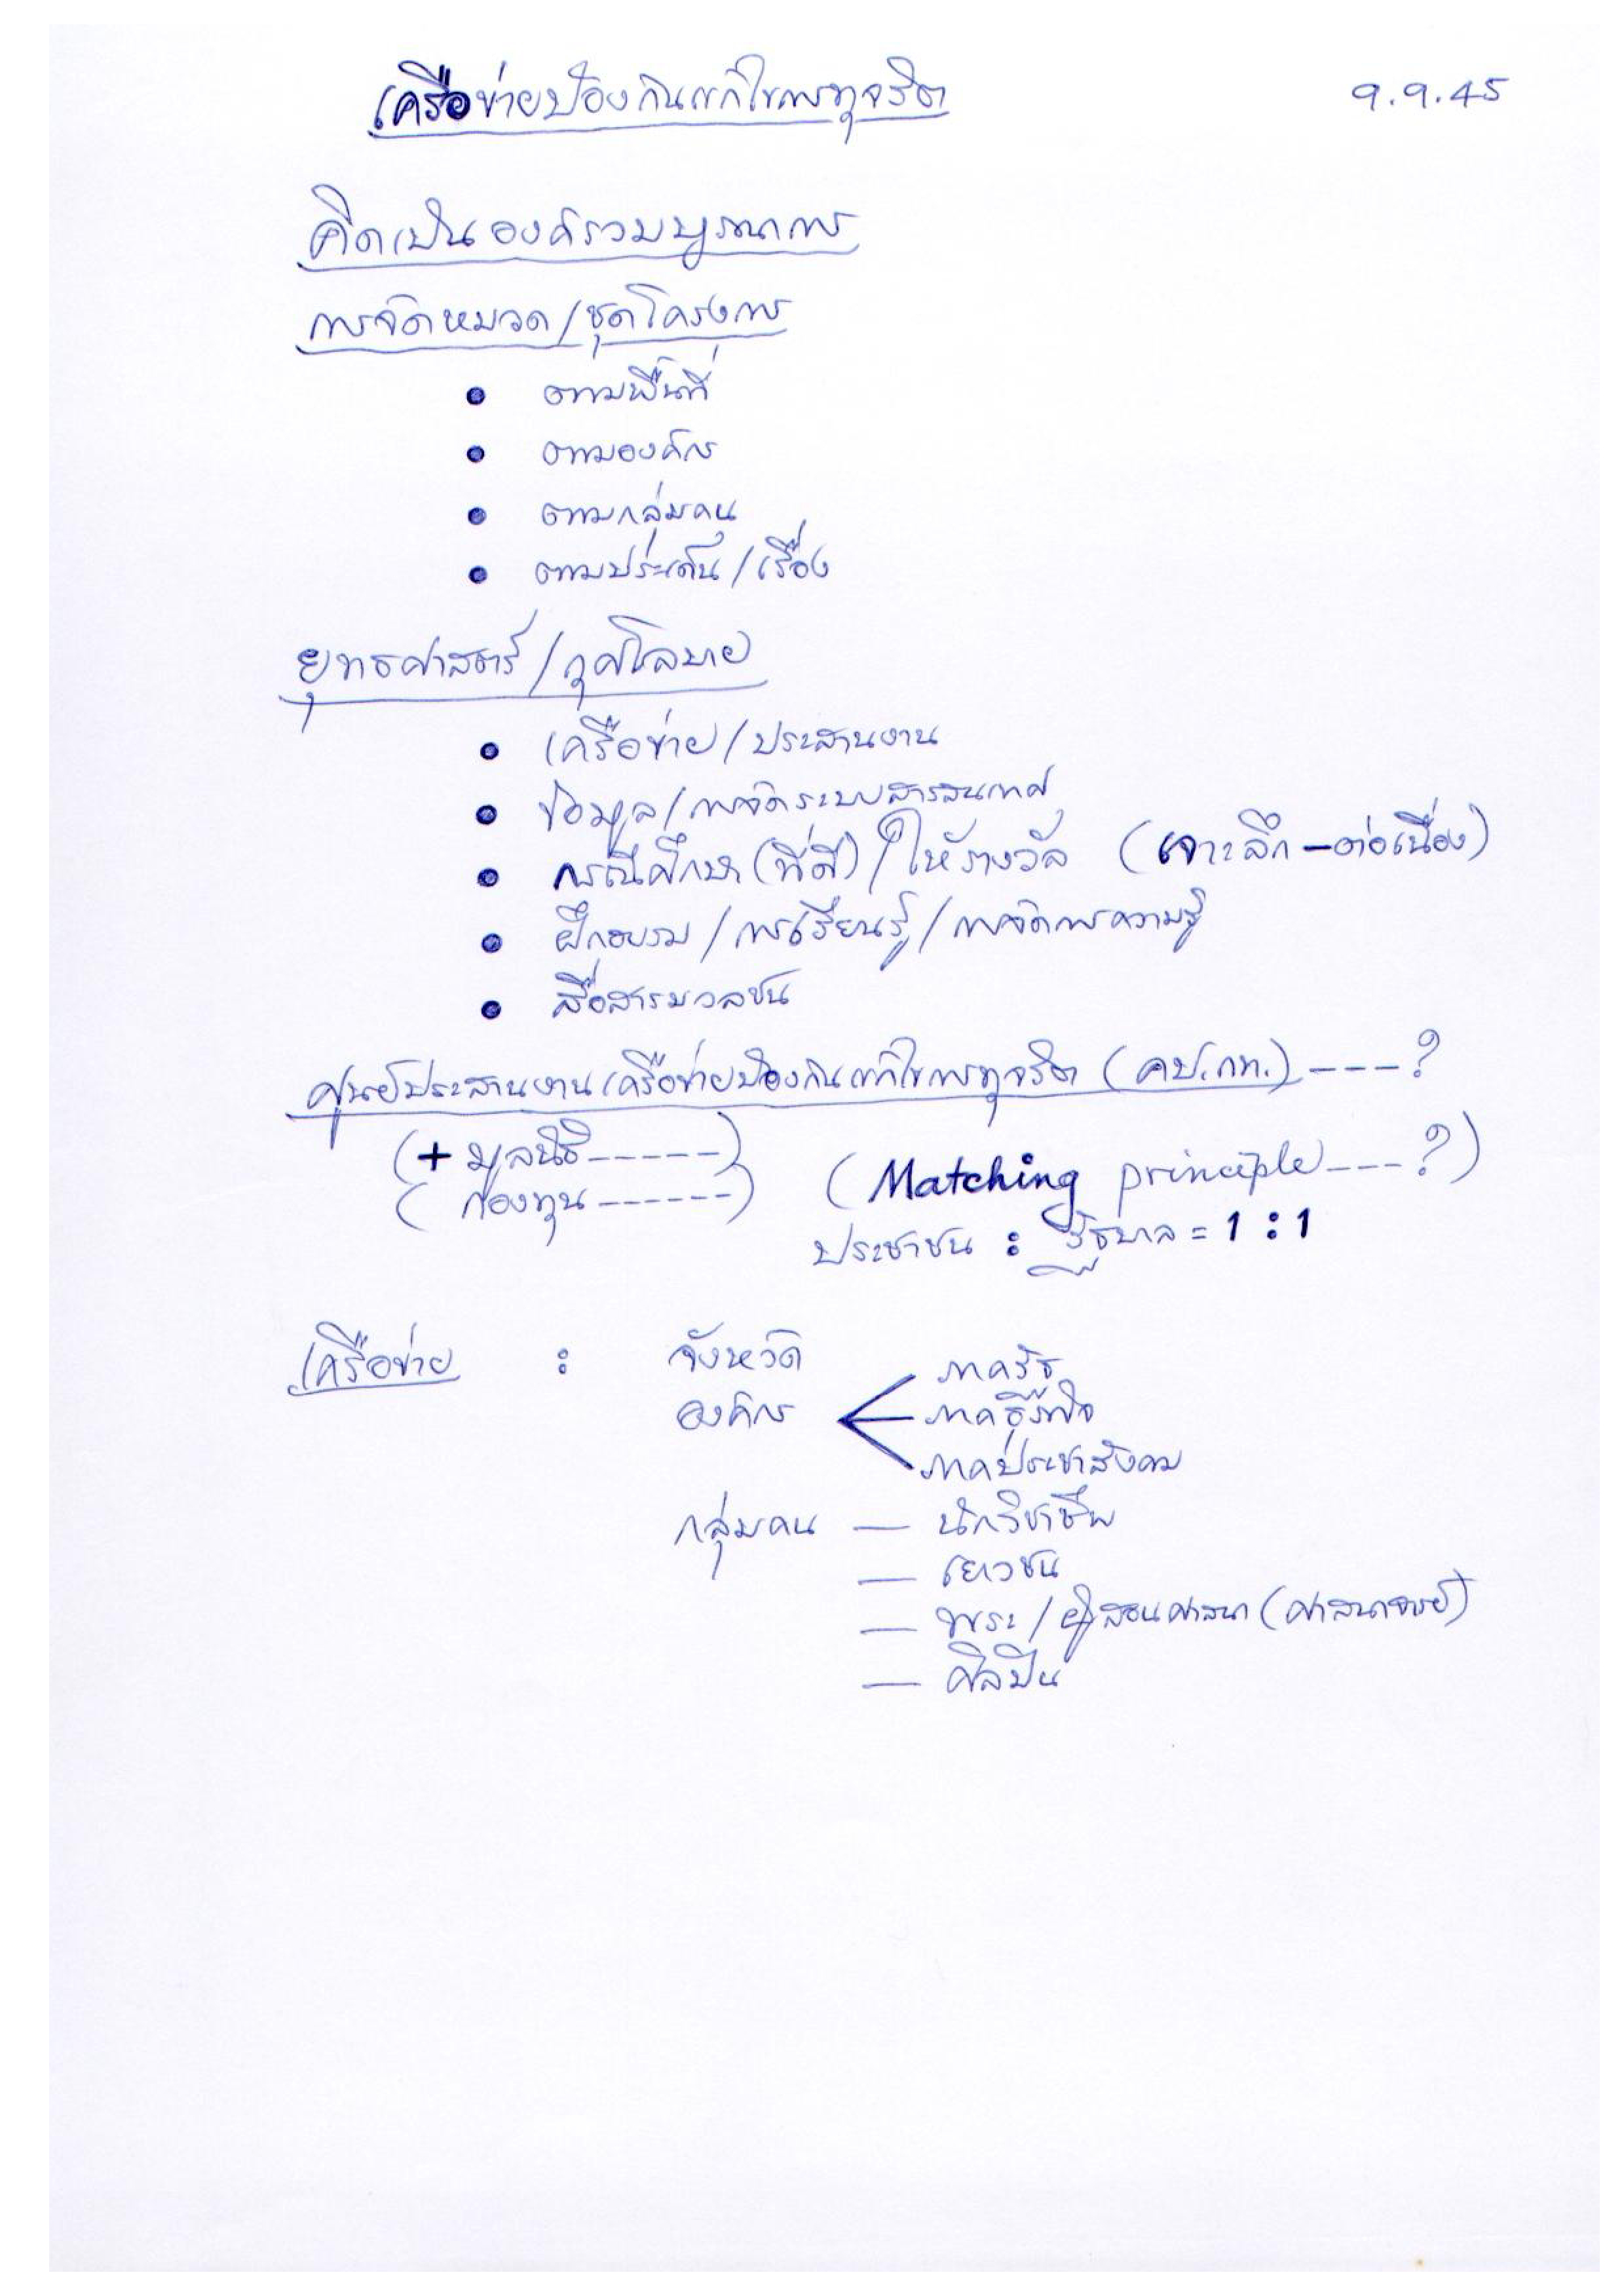 เครือข่ายป้องกันแก้ไขการทุจริต 9.9.45
คิดเป็นองค์รวมบูรณาการ
การจัดหมวด/ชุดโครงการ
• ตามพื้นที่
• ตามองค์กร
• ตามกลุ่มคน
• ตามประเด็น/เรื่อง
ยุทธศาสตร์/กุศโลบาย
• เครือข่าย/ประสานงาน
• ข้อมูล/การจัดระบบสารสนเทศ
• กรณีศึกษา(ที่ดี)/ให้รางวัล (เจาะลึก–ต่อเนื่อง)
• ฝึกอบรม/การเรียนรู้/การจัดการความรู้
• สื่อสารมวลชน
ศูนย์ประสานงานเครือข่ายป้องกันแก้ไขการทุจริต (คป.กท.) ----?
(+ มูลนิธิ-----)
( กองทุน------) (Matching principle---?)
ประชาชน : รัฐบาล = 1 : 1
เครือข่าย : จังหวัด
องค์กร ภาครัฐ
ภาคธุรกิจ
ภาคประชาสังคม
กลุ่มคน — นักวิชาชีพ
— เยาวชน
— พระ/ผู้สอนศาสนา (ศาสนาจารย์)
— ศิลปิน